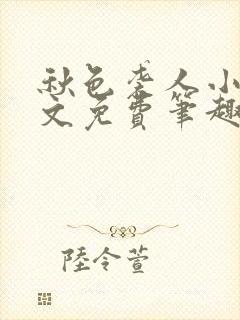 秋色袭人小
文免費筆趣
陸令萱